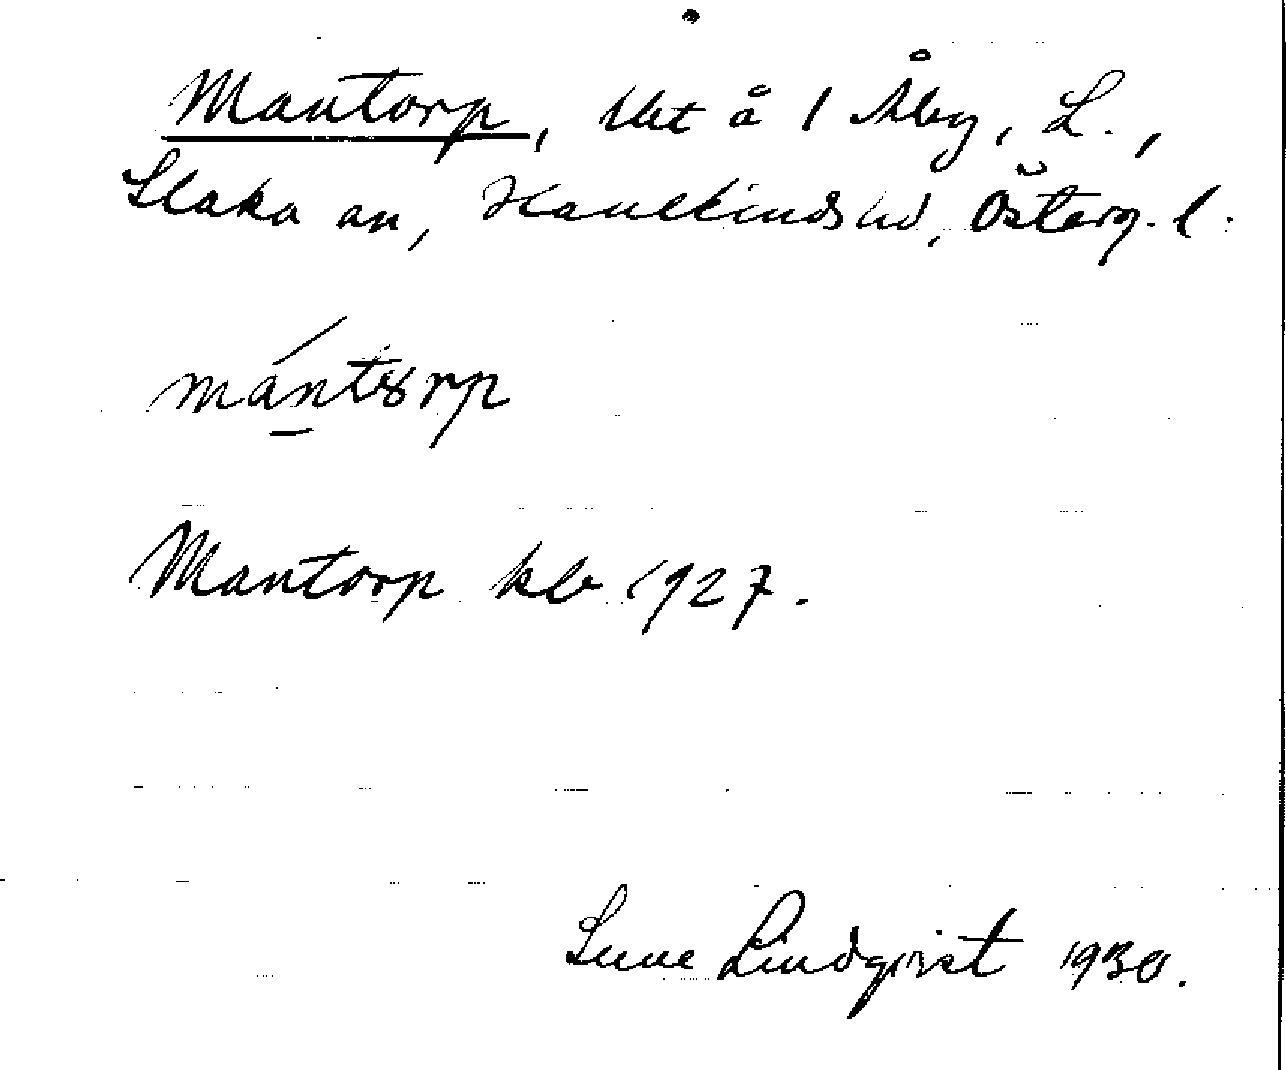 Mantorp, lht å 1 Åby, L.,
Slaka sn, Hanekinds hd, Österg. l.
mántorp
Mantorp kb 1927.
Sune Lindqvist 1930.